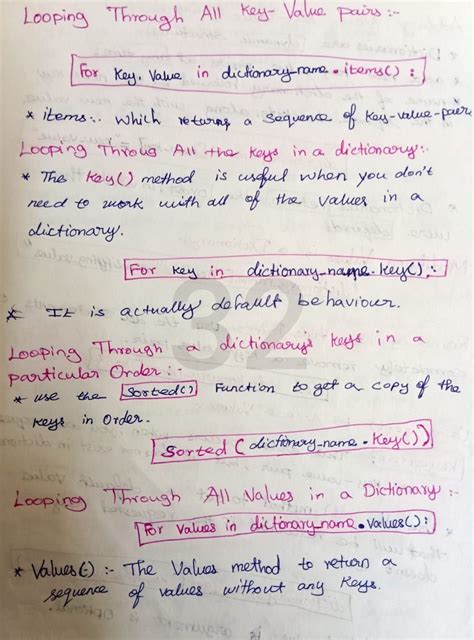 Looping Through All Key-Value pairs:-
For Key, Value in dictionary_name.items():
* items:. Which returns a Sequence of Key-value-pair
Looping Throug All the Keys in a dictionary:-
* The Key() method is useful when you don't
need to work with all of the values in a
dictionary.
For key in dictionary_name.key():
* It is actually default behaviour.
32
Looping Through a dictionary's keys in a
particular Order:-
* use the Sorted() Function to get a copy of the
Keys in Order.
Sorted (dictionary_name.Key())
Looping Through All Values in a Dictionary:-
For values in dictionary_name.values():
* Values():- The Values method to return a
sequence of values without any Keys.